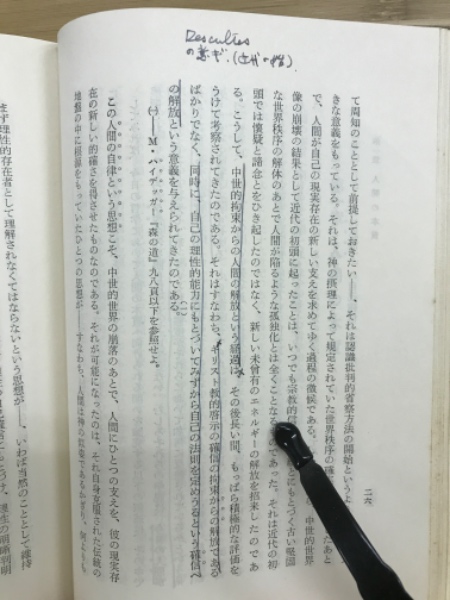 Descartes
の意ギ.(近代の端).
二六
て周知のこととして前提しておきたい——、それは認識批判的省察方法の開始というよ
きな意義をもっている。それは、神の摂理によって規定されていた世界秩序の確
あったあと
で、人間が自己の現実存在の新しい支えを求めてゆく過程の徴候である。
中世的世界
像の崩壊の結果として近代の初頭に起ったことは、いつでも宗教的
にもとづく古い堅固
な世界秩序の解体のあとで人間が陥るような孤独化とは全くことなる
であった。それは近代の初
頭では懐疑と諦念とをひき起したのではなく、新しい未曾有のエネルギーの解放を招来したのであ
る。こうして、中世的拘束からの人間の解放という経過は、その後長い間、もっぱら積極的な評価を
うけて考察されてきたのである。それはすなわち、キリスト教的啓示の確信の拘束からの解放である
ばかりでなく、同時に、自己の理性的能力にもとづいてみずから自己の法則を定めうるという確信へ
の解放という意義を与えられてきたのである。(一)
(一)——M・ハイデッガー『森の道』九八頁以下を参照せよ。
この人間の自律という思想こそ、中世的世界の崩落のあとで、人間にひとつの支えを、彼の現実存
在の新しい的確さを得させたものなのである。それが可能になったのは、それ自身克服された伝統の
地盤の中に根源をもっていたひとつの思想が——すなわち、人間は神の似姿であるかぎり、何よりも
まず理性的存在者として理解されなくてはならないという思想が——、いわば当然のこととして維持